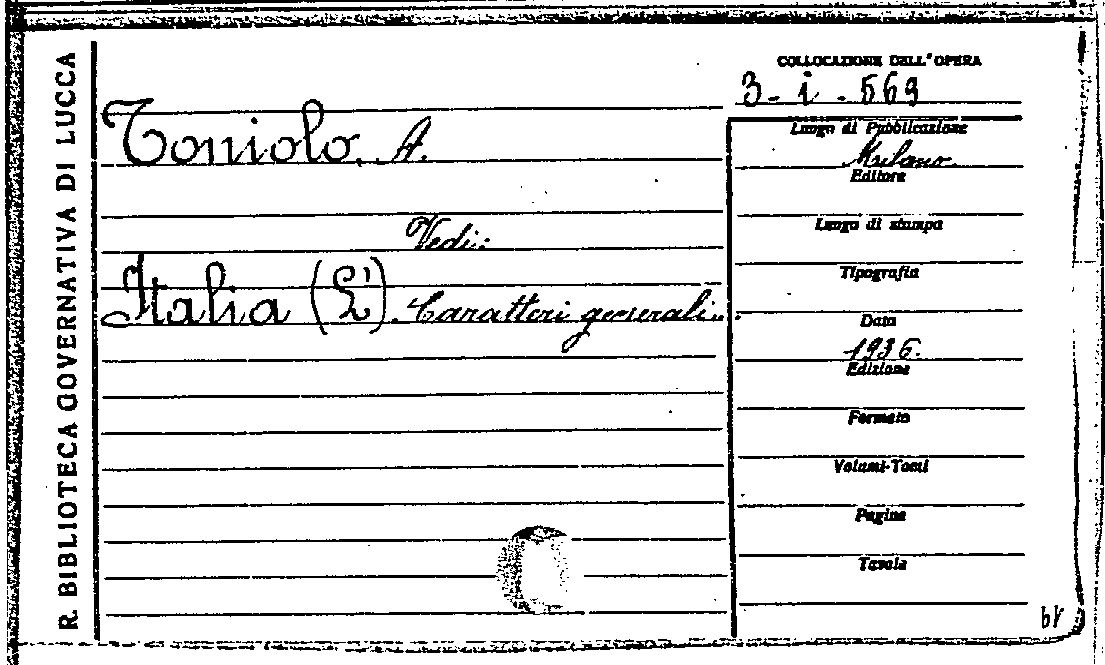 R. BIBLIOTECA GOVERNATIVA DI LUCCA
Toniolo, A.
Vedi:
Italia (L'). Caratteri generali...
COLLOCAZIONE DELL'OPERA
3- i . 569
Luogo di Pubblicazione
Milano
Editore
Luogo di stampa
Tipografia
Data
1936.
Edizione
Formato
Volumi-Tomi
Pagine
Tavole